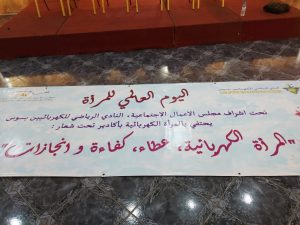 اليوم العالمي للمرأة
تحت اشراف مجلس الاعمال الاجتماعية، النادي الرياضي للكهربائيين بسوس
يحتفي بالمرأة الكهربائية بأكادير تحت شعار:
"المرأة الكهربائية، عطاء، كفاءة و انجازات"